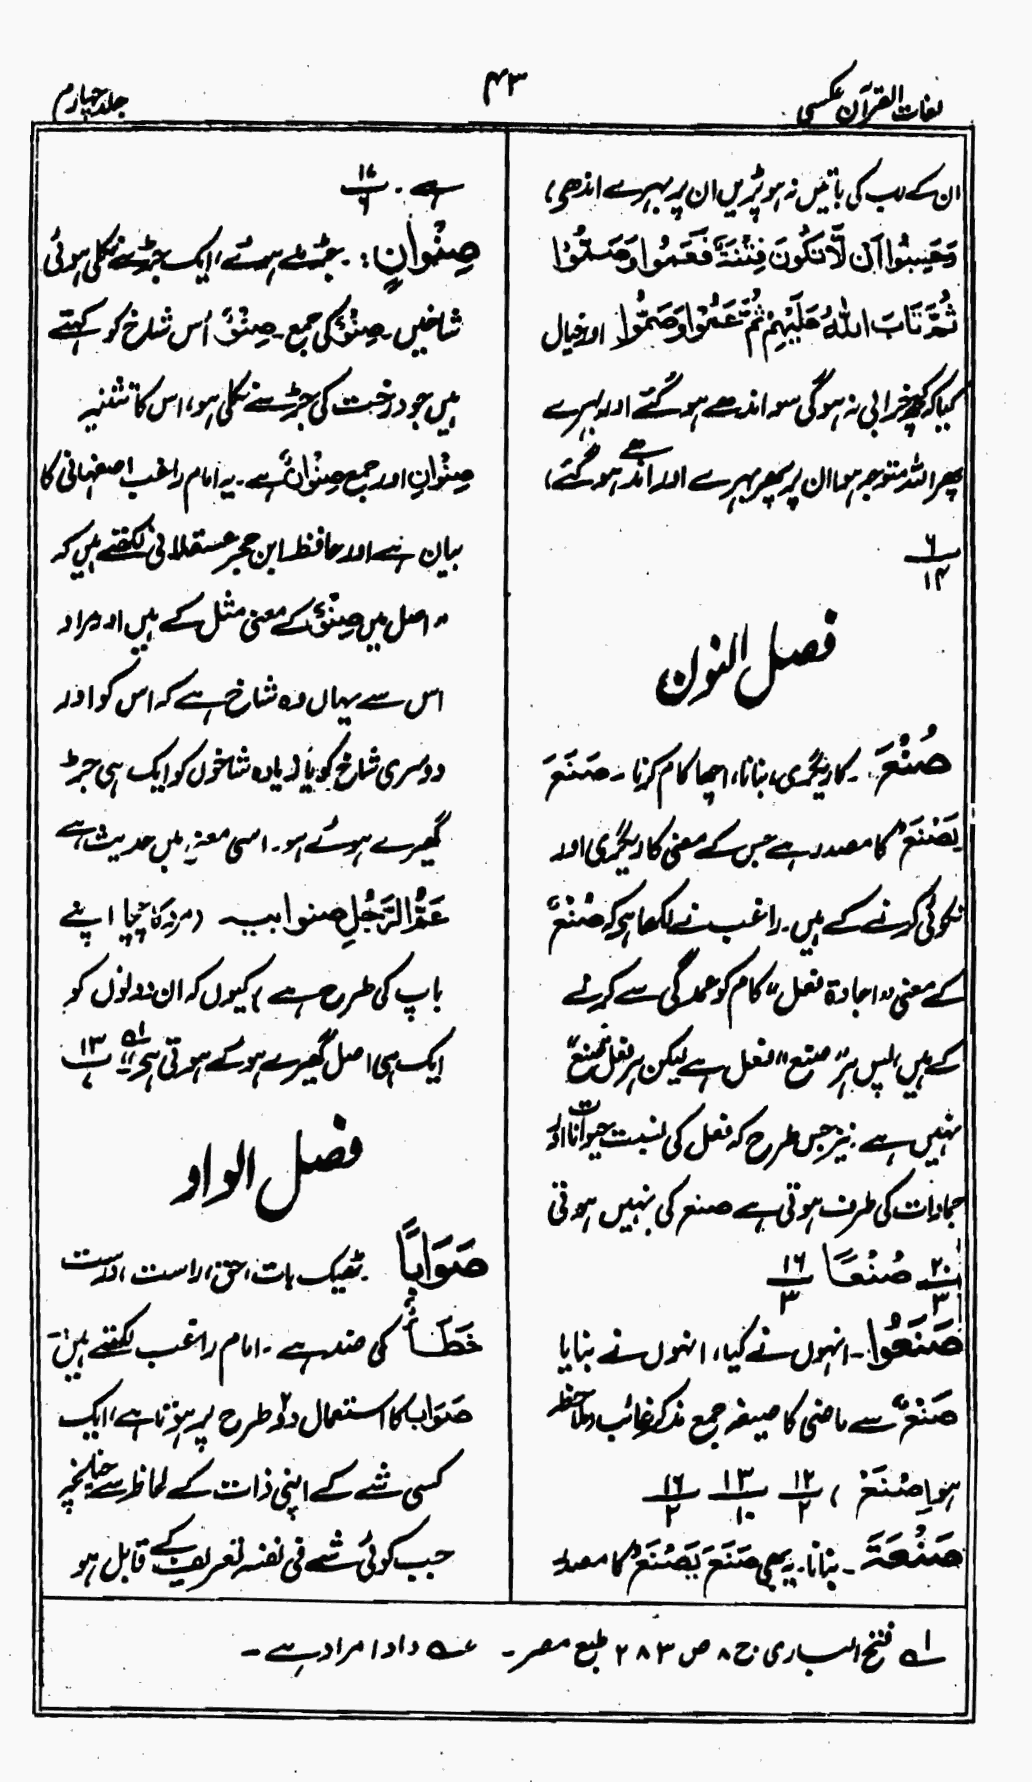 لغات القرآن عکسی
۴۳
جلد چہارم
ان کے سب کی باتیں نہ ہو پڑیں ان پر بہرے اندھے،
وَحَسِبُوا اَنْ لَّا تَکُوْنَ فِتْنَةٌ فَعَمُوا وَصَمُّوْا
ثُمَّ تَابَ اللّٰهُ عَلَیْهِمْ ثُمَّ عَمُوْا وَصَمُّوا اور خیال
کیا کہ کچھ خرابی نہ ہوگی سو اندھے ہو گئے اور بہرے
پھر اللہ متوجہ ہوا ان پر پھر بہرے اور اندھے ہو گئے،
۶
۱۴
فصل النون
صُنْعَ ۔ کاریگری، بنانا، اچھا کام کرنا ۔ صَنَعَ
یَصْنَعُ کا مصدر ہے جس کے معنی کاریگری اور
نکوئی کرنے کے ہیں ۔ راغب نے لکھا ہے کہ صُنْعٌ
کے معنی "اجادة فعل" کام کو عمدگی سے کرنے
کے ہیں پس ہر "صنع" فعل ہے لیکن ہر فعل صُنْعٌ
نہیں ہے ۔ نیز جس طرح کہ فعل کی نسبت حیوانات اور
جمادات کی طرف ہوتی ہے صنع کی نہیں ہوتی
۲۰/۳ صُنْعًا ۱۶/۳
صَنَعُوا ۔ انہوں نے کیا، انہوں نے بنایا
صَنْعٌ سے ماضی کا صیغہ جمع مذکر غائب، ملاحظہ
ہو اِصْنَعْ ، ۱۲/۲ ۱۳/۱۰ ۱۶/۲
صَنْعَةَ ۔ بنانا ۔ یہ بھی صَنَعَ یَصْنَعُ کا مصدر
ہے ۔ ۱۷/۶
صِنْوَانٍ: ۔ جڑ ملے ہوئے، ایک جڑ سے نکلی ہوئی
شاخیں ۔ صِنْوٌ کی جمع ۔ صِنْوٌ اُس شاخ کو کہتے
ہیں جو درخت کی جڑ سے نکلی ہو، اس کا تثنیہ
صِنْوَانِ اور جمع صِنْوَانٌ ہے ۔ یہ امام راغب اصفہانی کا
بیان ہے اور حافظ ابن حجر عسقلانی لکھتے ہیں کہ
"اصل میں صِنْوٌ کے معنی مثل کے ہیں اور مراد
اس سے یہاں وہ شاخ ہے کہ اس کو اور
دوسری شاخ کو یا زیادہ شاخوں کو ایک ہی جڑ
گھیرے ہوئے ہو ۔ اسی معنی میں حدیث ہے
عَمُّ الرَّجُلِ صنو ابیہ (مرد کا چچا اپنے
باپ کی طرح ہے) کیوں کہ ان دونوں کو
ایک ہی اصل گھیرے ہوئے ہوتی ہے" ۱ے ۱۳
فصل الواو
صَوَابًا ۔ ٹھیک بات، حق، راست، درست
خَطَأٌ کی ضد ہے ۔ امام راغب لکھتے ہیں ۔
صَوَاب کا استعمال دو۲ طرح پر ہوتا ہے، ایک
کسی شے کے اپنی ذات کے لحاظ سے چنانچہ
جب کوئی شے فی نفسہ تعریف کے قابل ہو
۱ے فتح الباری ج ۸ ص ۲۸۳ طبع مصر ۔ عہ دادا مراد ہے ۔